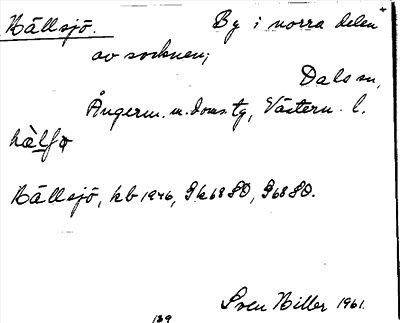 Hällsjö. By i norra delen +
av socknen;
Dals sn,
Ångerm. m. doms. tg, Västern. l.
Hällsjö, kb 1946, Gk68SO, G68SO.
Sven Hiller 1961.
139